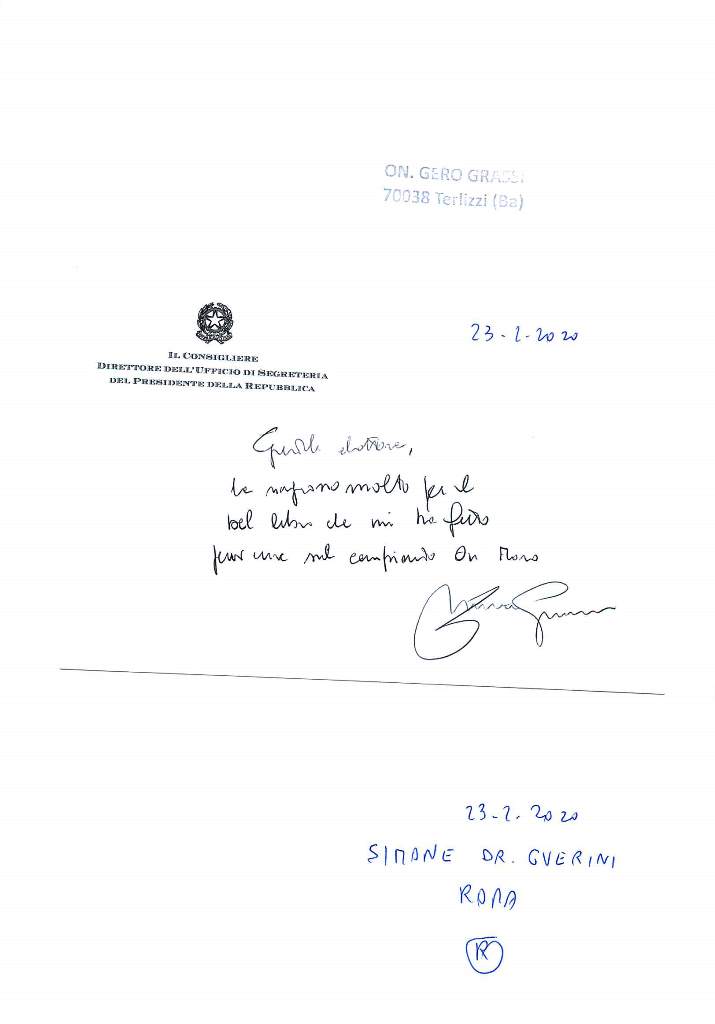 ON. GERO GRASSI
70038 Terlizzi (Ba)
23-2-2020
IL CONSIGLIERE
DIRETTORE DELL'UFFICIO DI SEGRETERIA
DEL PRESIDENTE DELLA REPUBBLICA
Gentile dottore,
la ringrazio molto per il
bel libro che mi ha fatto
sul compianto On Moro
23-2-2020
SIMONE DR. GUERINI
ROMA
R